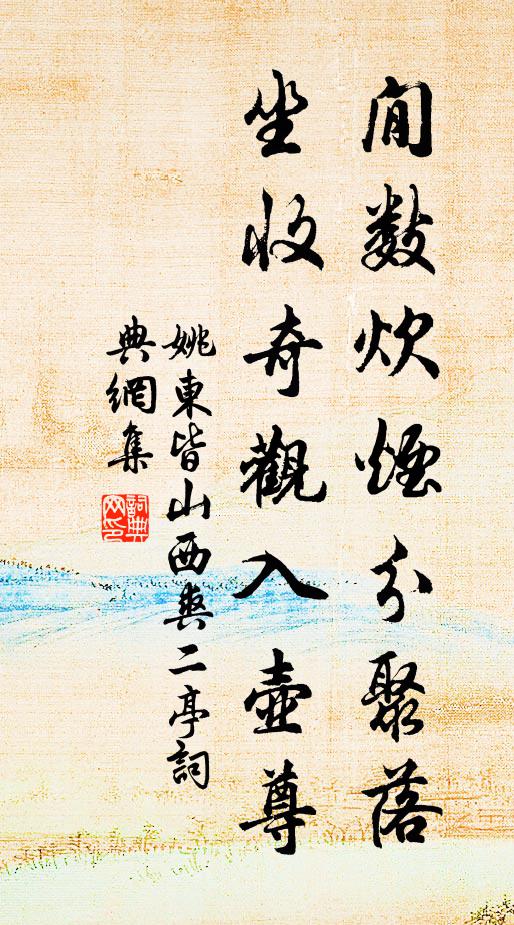 閒數炊煙分聚落
坐收奇觀入壺尊
姚東皆山西爽二亭詞
典網集
詞典網印